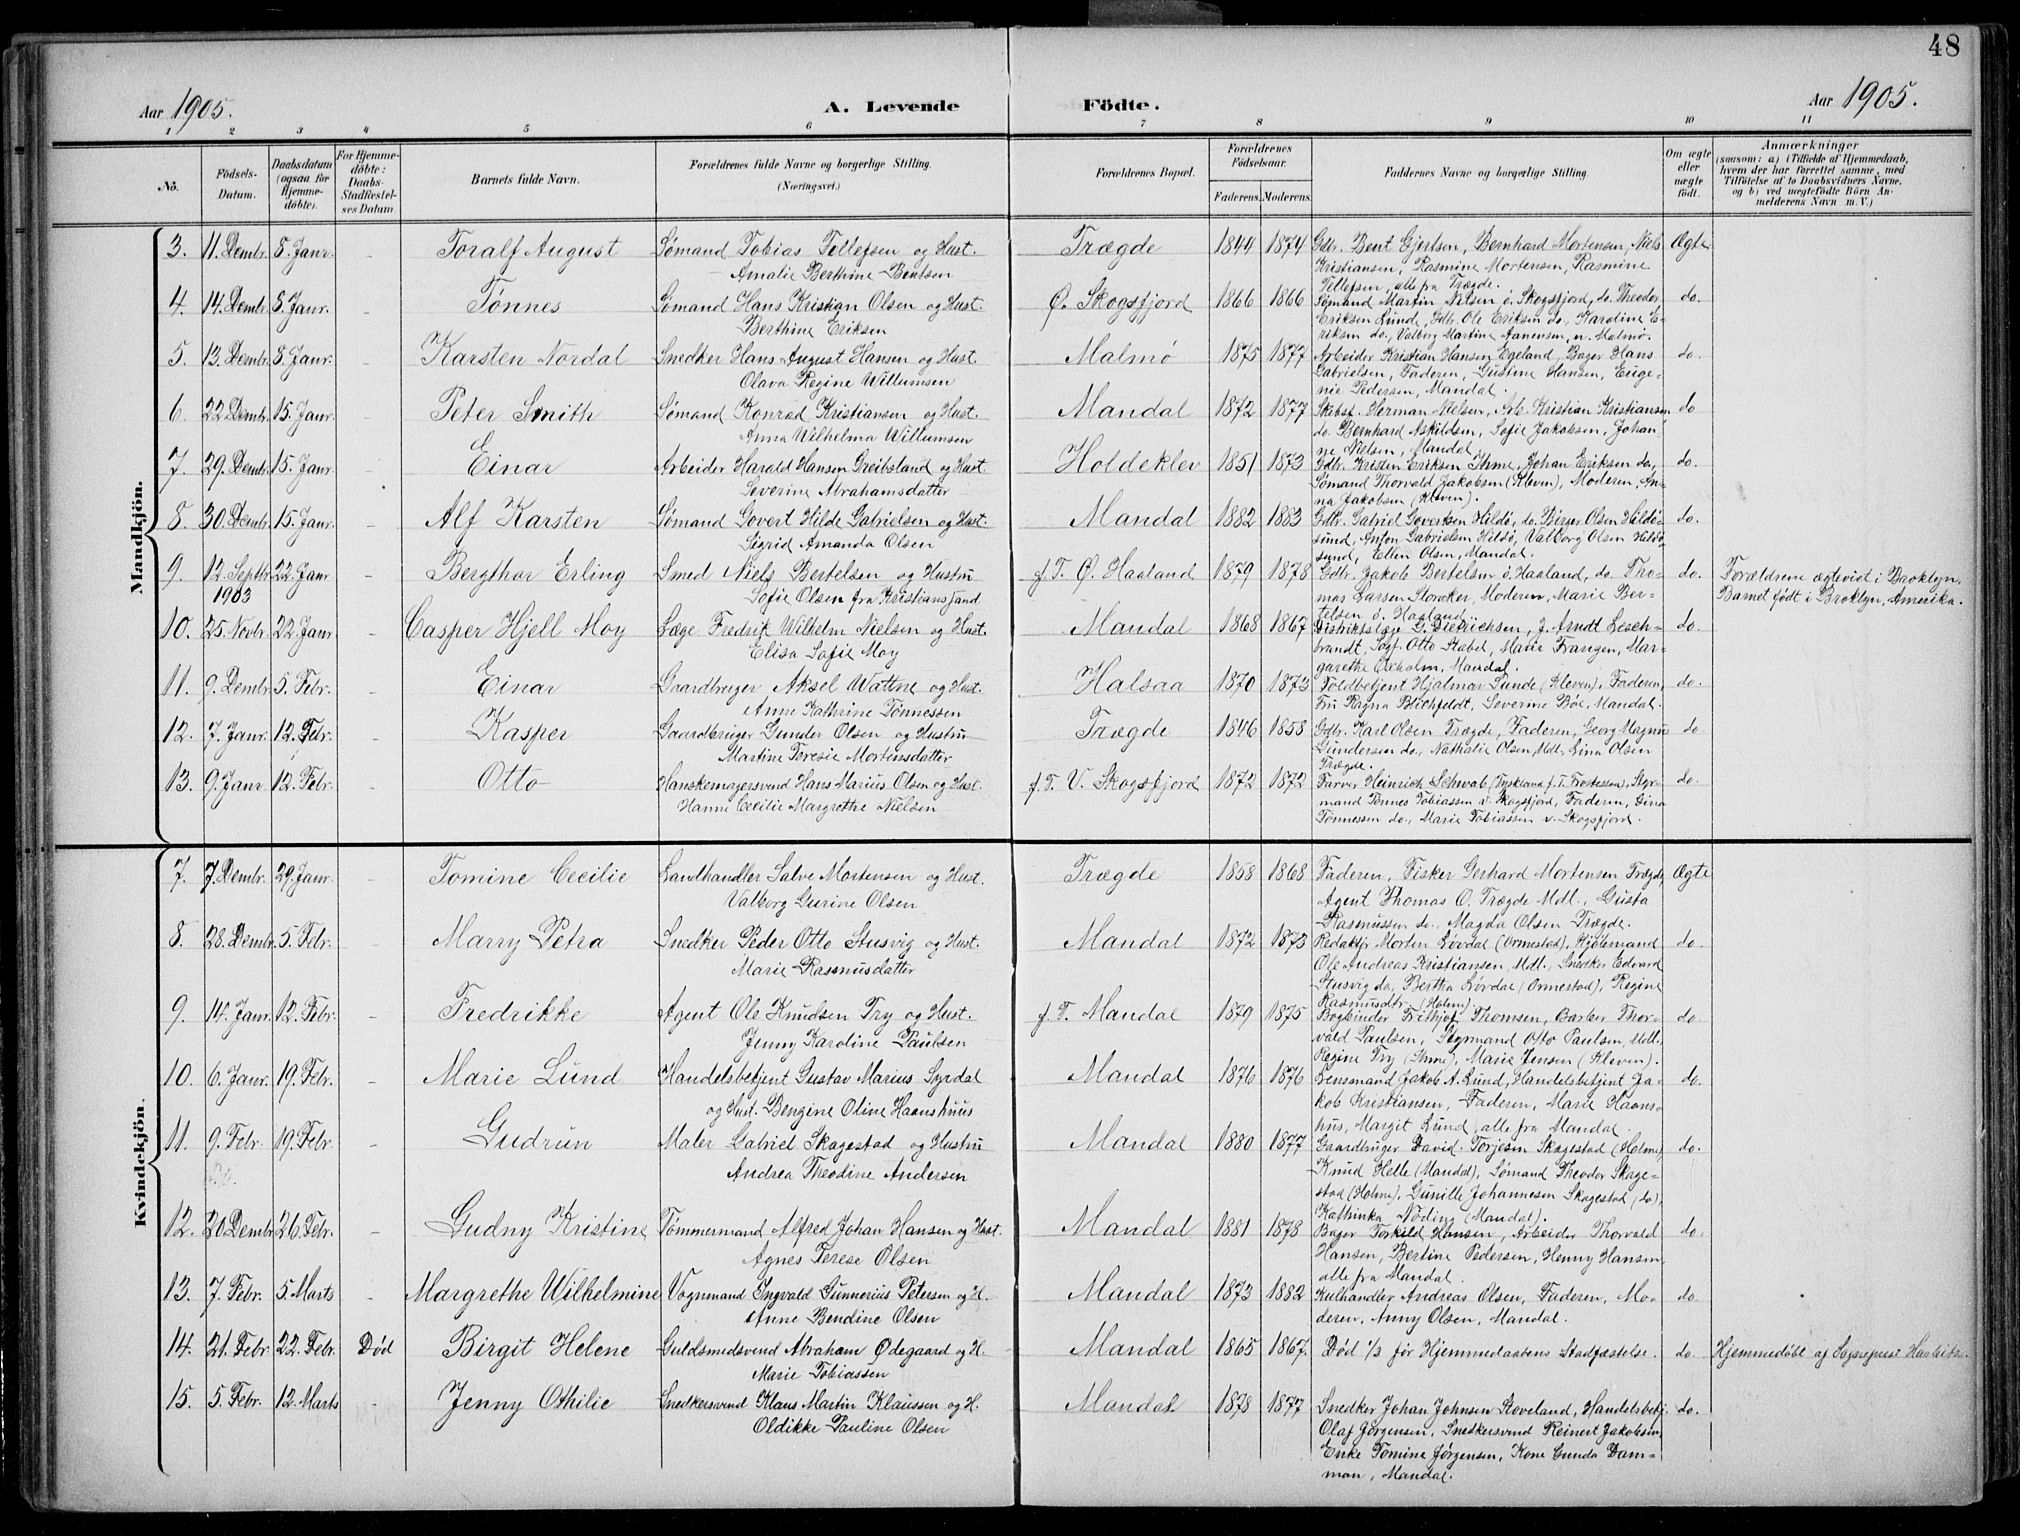 48
Aar 1905. A. Levende Fødte. Aar 1905.
1 2 3 4 5 6 7 8 9 10 11
No.
Fødsels-
Datum.
Daabsdatum
(ogsaa for
Hjemme-
døbte).
For Hjemme-
døbte:
Daabs-
Stadfæstel-
ses Datum.
Barnets fulde Navn.
Forældrenes fulde Navne og borgerlige Stilling.
(Næringsvei.)
Forældrenes Bopæl.
Forældrenes
Fødselsaar.
Faderens. Moderens.
Faddernes Navne og borgerlige Stilling.
Om ægte
eller
uægte
født.
Anmærkninger
(saasom: a) i Tilfælde af Hjemmedaab,
hvem der har forrettet samme, med
Tilføielse af to Daabsvidners Navne,
og b) ved uægtefødte Børn An-
melderens Navn m. V.)
Mandkjön.
3. 11. Dembr. 8. Janr. - Toralf August Sømand Tobias Tellefsen og Hust. Trægde 1844 1874 Gdbr. Bent Gjertsen, Bernhard Mortensen, Niels Ægte
Amalie Berthine Bentsen Kristiansen, Rasmine Mortensen, Rasmine
Tellefsen, alle fra Trægde.
4. 14. Dembr. 8. Janr. - Tønnes Sømand Hans Kristian Olsen og Hust. Ø. Skogsfjord 1866 1866 Sømand Martin Nilsen ö. Skogsfjord, do. Theodor do.
Berthine Eriksen Eriksen Lunde, Gdbr. Ole Eriksen do., Karoline E-
riksen do., Valborg Martine Aanensen, n. Malmö.
5. 13. Dembr. 8. Janr. - Karsten Nordal Snedker Hans August Hansen og Hust. Malmø 1875 1877 Arbeider Kristian Hansen Egeland, Bager Hans do.
Olava Regine Willumsen Gabrielsen, Faderen, Gustine Hansen, Euge-
nie Pedersen, Mandal.
6. 22. Dembr. 15. Janr. - Peter Smith Sømand Konrad Kristiansen og Hust. Mandal 1872 1877 Skibsf. Herman Nielsen, Arb. Kristian Kristiansen do
Anna Wilhelma Willumsen do. Bernhard Askildsen, Sofie Jakobsen, Johan-
ne Nielsen, Mandal.
7. 29. Dembr. 15. Janr. - Einar Arbeider Harald Hansen Greibsland og Hust. Holdeklev 1851 1873 Gdbr. Kristen Eriksen Ihme, Johan Eriksen do., do.
Severine Abrahamsdatter Sømand Thorvald Jakobsen (Kleven), Moderen, An-
na Jakobsen (Kleven).
8. 30. Dembr. 15. Janr. - Alf Karsten Sømand Govert Hilde Gabrielsen og Hust. Mandal 1882 1883 Gdbr. Gabriel Govertsen Hildø, do. Birger Olsen Hildø- do.
Sigrid Amanda Olsen sund, Anton Gabrielsen Hildø, Valborg Olsen Hildø-
sund, Ellen Olsen, Mandal.
9. 12. Septbr. 22. Janr - Bergthor Erling Smed Niels Bertelsen og Hustru f. T. Ø. Haaland 1879 1878 Gdbr. Jakob Bertelsen ö. Haaland, do. Tho- do. Forældrene ægteviet i Brooklyn,
1903 Sofie Olsen fra Kristianssand mas Larsen, Moderen, Marie Ber- Barnet født i Broklyn, Amerika.
telsen ö. Haaland.
10. 25. Novbr. 22. Janr - Casper Hjell Moy Læge Fredrik Wilhelm Nielsen og Hust. Mandal 1868 1867 Distriktslæge G. Dietrichsen, J. Arndt Lesch- do.
Elisa Sofie Moy brandt, Sagf. Otto Stabel, Marie Frangen, Mar-
garethe Oxholm, Mandal.
11. 9. Dembr. 5. Febr. - Einar Gaardbruger Aksel Wattne og Hust. Halsaa 1870 1873 Toldbetjent Hjalmar Sunde (Kleven), Faderen, do.
Anne Kathrine Tønnessen Fru Ragna Blichfeldt, Severine Bøe, Mandal.
12. 7. Janr. 12. Febr. - Kasper Gaardbruger Gunder Olsen og Hustru Trægde 1846 1858 Gdbr. Karl Olsen Trægde, Faderen, Georg Magnus do
Martine Teresie Mortensdatter Gundersen do., Nathalie Olsen, Mdl., Lina Olsen
Trægde.
13. 9. Janr. 12. Febr. - Otto Hanskemagersvend Hans Marius Olsen og Hust. f. T. V. Skogsfjord 1872 1872 Farver Heinrich Schwab, Styr- do.
Hanne Cecilie Margrethe Nielsen mand Tönnes Tobiassen v. Skogsfjord, Faderen, Dina
Tønnessen do., Marie Tobiassen v. Skogsfjord.
Kvindekjön.
7. 7. Dembr. 29. Janr. - Tomine Cecilie Landhandler Salve Mortensen og Hust. Trægde 1858 1868 Faderen, Fisker Gerhard Mortensen Trægde, Ægte
Valborg Gurine Olsen Agent Thomas O. Trægde Mdl., Gusta
Rasmussen do., Magda Olsen Trægde.
8. 28. Dembr. 5. Febr. - Marry Petra Snedker Peder Otto Stusvig og Hust. Mandal 1872 1873 Redaktør Morten Løvdal (Ormestad), Hjulemand do.
Marie Rasmusdatter Ole Andreas Kristiansen, Mdl., Snedker Edvard
Stusvig do., Bertha Løvdal (Ormestad), Regine
Rasmusdtr. (Holme).
9. 14. Janr. 12. Febr. - Fredrikke Agent Ole Knudsen Try og Hust. f. T. Mandal 1879 1875 Bogbinder Frithjof Thomsen, Barber Thor- do.
Jenny Karoline Paulsen vald Paulsen, Styrmand Otto Paulsen, Mdl.,
Regine Try (Ihme), Marie Jensen (Kleven).
10. 6. Janr. 19. Febr. - Marie Lund Handelsbetjent Gustav Marius Syrdal Mandal 1876 1876 Lensmand Jakob A. Lund, Handelsbetjent Ja- do.
og Hust. Bengine Oline Haanshuus kob Kristiansen, Faderen, Marie Haans-
hus, Margit Lund, alle fra Mandal.
11. 9. Febr. 19. Febr. - Gudrun Maler Gabriel Skagestad og Hustru Mandal 1880 1877 Gaardbruger David Torjesen Skagestad (Holme) do.
Andrea Theodine Andersen Knud Helle (Mandal), Sømand Theodor Skage-
stad (Holme), Gunille Johannesen Skagestad (do),
Kathinka Nöding (Mandal).
12. 20. Dembr 26. Febr. - Gudny Kristine Tømmermand Alfred Johan Hansen og Hust. Mandal 1881 1878 Bager Torkild Hansen, Arbeider Thorvald do.
Agnes Terese Olsen Hansen, Bertine Pedersen, Henny Hansen,
alle fra Mandal.
13. 7. Febr. 5. Marts - Margrethe Wilhelmine Vognmand Ingvald Gunnerius Petersen og H. Mandal 1873 1882 Kulhandler Andreas Olsen, Faderen, Mo- do
Anne Bendine Olsen deren, Anny Olsen, Mandal.
14. 21. Febr. 22. Febr. Død Birgit Helene Guldsmedsvend Abraham Ødegaard og H. Mandal 1865 1867. Død 1/3 før Hjemmedaabens Stadfæstelse. do. Hjemmedøbt af Sogneprest
Marie Tobiassen
15. 5. Febr. 12. Marts - Jenny Othilie Snedkersvend Klaus Martin Klaussen og H. Mandal 1878 1877 Snedker Johan Johnsen Stoveland, Handelsbetj. do.
Oldikke Pauline Olsen Olaf Jörgensen, Snedkersvend Reinert Jakobsen,
Enke Tomine Jørgensen, Kone Gunda Dam-
man, Mandal.